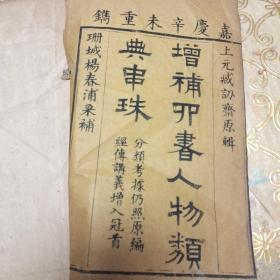 嘉慶辛未重鐫
上元臧訒齋原輯
增補四書人物類
典串珠
分類考據仍照原編
經傳講義增入冠首
珊城楊春浦彙補